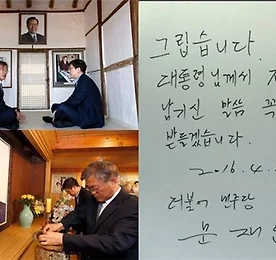 그립습니다.
대통령님께서
남기신 말씀 꼭
받들겠습니다.
2016.4.
더불어 민주당
문 재